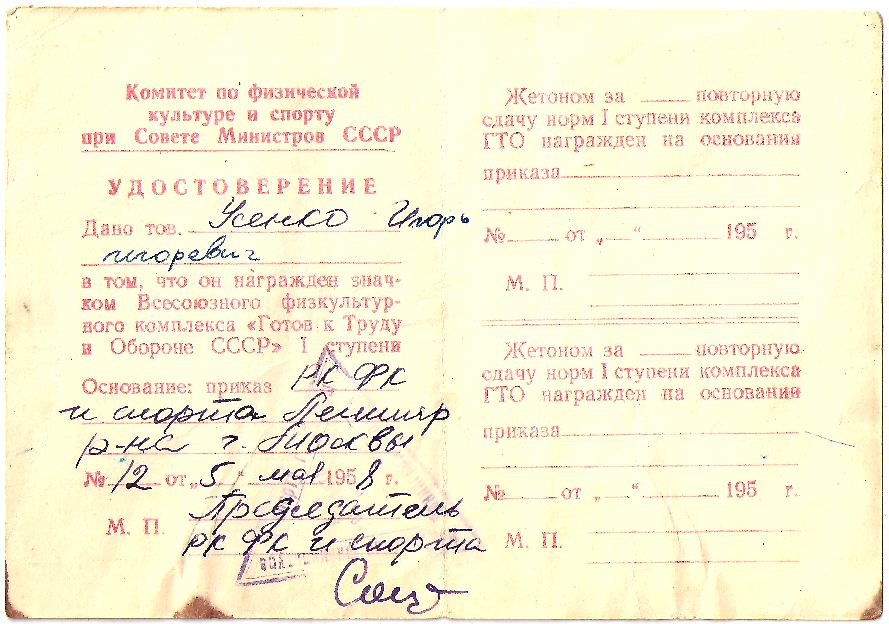 Комитет по физической
культуре и спорту
при Совете Министров СССР
УДОСТОВЕРЕНИЕ
Дано тов. Усенко Игорь
игоревич
в том, что он награжден знач-
ком Всесоюзного физкультур-
ного комплекса «Готов к Труду
и Обороне СССР» I ступени
Основание: приказ РК ФК
и спорта Ленингр
р-на г. Москвы
№ 12 от „5“ мая 1958 г.
Председатель
М. П. РК ФК и спорта
Жетоном за ____ повторную
сдачу норм I ступени комплекса
ГТО награжден на основании
приказа
№ ____ от „__“ ____ 195 г.
М. П.
Жетоном за ____ повторную
сдачу норм I ступени комплекса
ГТО награжден на основании
приказа
№ ____ от „__“ ____ 195 г.
М. П.